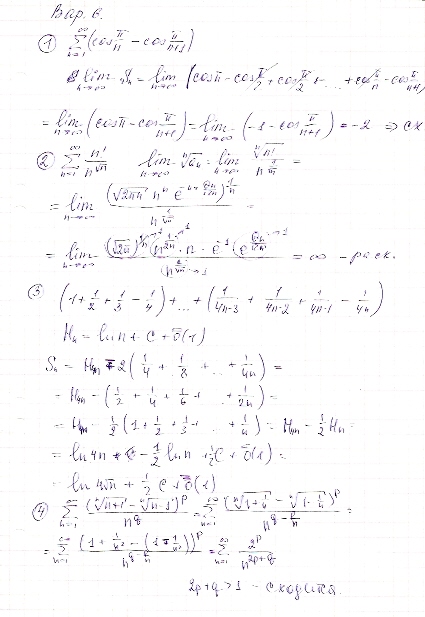 Вар. 6.
① ∑_{n=1}^{∞} (cos π/n − cos π/(n+1))
lim_{n→∞} Sₙ = lim_{n→∞} (cos π − cos π/2 + cos π/2 + ... + cos π/n − cos π/(n+1))
= lim_{n→∞} (cos π − cos π/(n+1)) = lim_{n→∞} (−1 − cos π/(n+1)) = −2 ⇒ сх
② ∑_{n=1}^{∞} n!/n^{√n} lim_{n→∞} ⁿ√aₙ = lim_{n→∞} ⁿ√n! / n^{1/√n} =
= lim_{n→∞} (√2πn nⁿ e^{−n+})^{1/n} / n^{1/√n} =
= lim_{n→∞} · n · e⁻¹ = ∞ − расх.
③ (1 + 1/2 + 1/3 − 1/4) + ... + (1/(4n−3) + 1/(4n−2) + 1/(4n−1) − 1/4n)
Hₙ = ln n + C + o(1)
Sₙ = H₄ₙ − 2(1/4 + 1/8 + ... + 1/4n) =
= H₄ₙ − (1/2 + 1/4 + 1/6 + ... + 1/2n) =
= H₄ₙ − 1/2 (1 + 1/2 + 1/3 + ... + 1/n) = H₄ₙ − 1/2 Hₙ =
= ln 4n + C − 1/2 ln n + 1/2 C + o(1) =
= ln 4√n + 1/2 C + o(1)
④ ∑_{n=1}^{∞} (ⁿ√n+1 − ⁿ√n−1)^p / n^q = ∑_{n=1}^{∞} (ⁿ√1+1/n − ⁿ√1−1/n)^p / n^{q − p/n} =
= ∑_{n=1}^{∞} (1 + 1/n² − (1 − 1/n²))^p / n^{q − p/n} = ∑_{n=1}^{∞} 2^p / n^{2p+q}
2p+q > 1 − сходится.